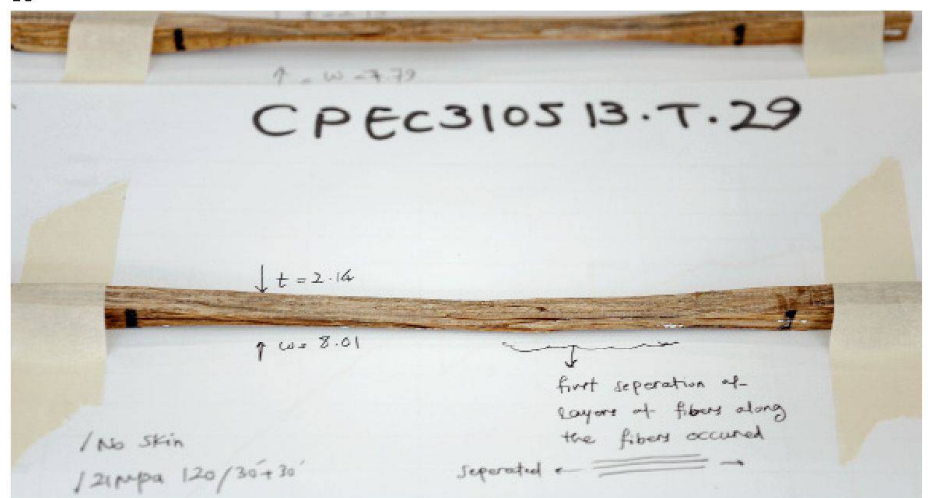 ↑ - w = 7.79
CPEC310513.T.29
↓ t = 2.14
↑ w= 8.01
first seperation of
layers of fibers along
the fibers occured
/ No skin
separated ← →
/ 21mpa 120/30'+30'